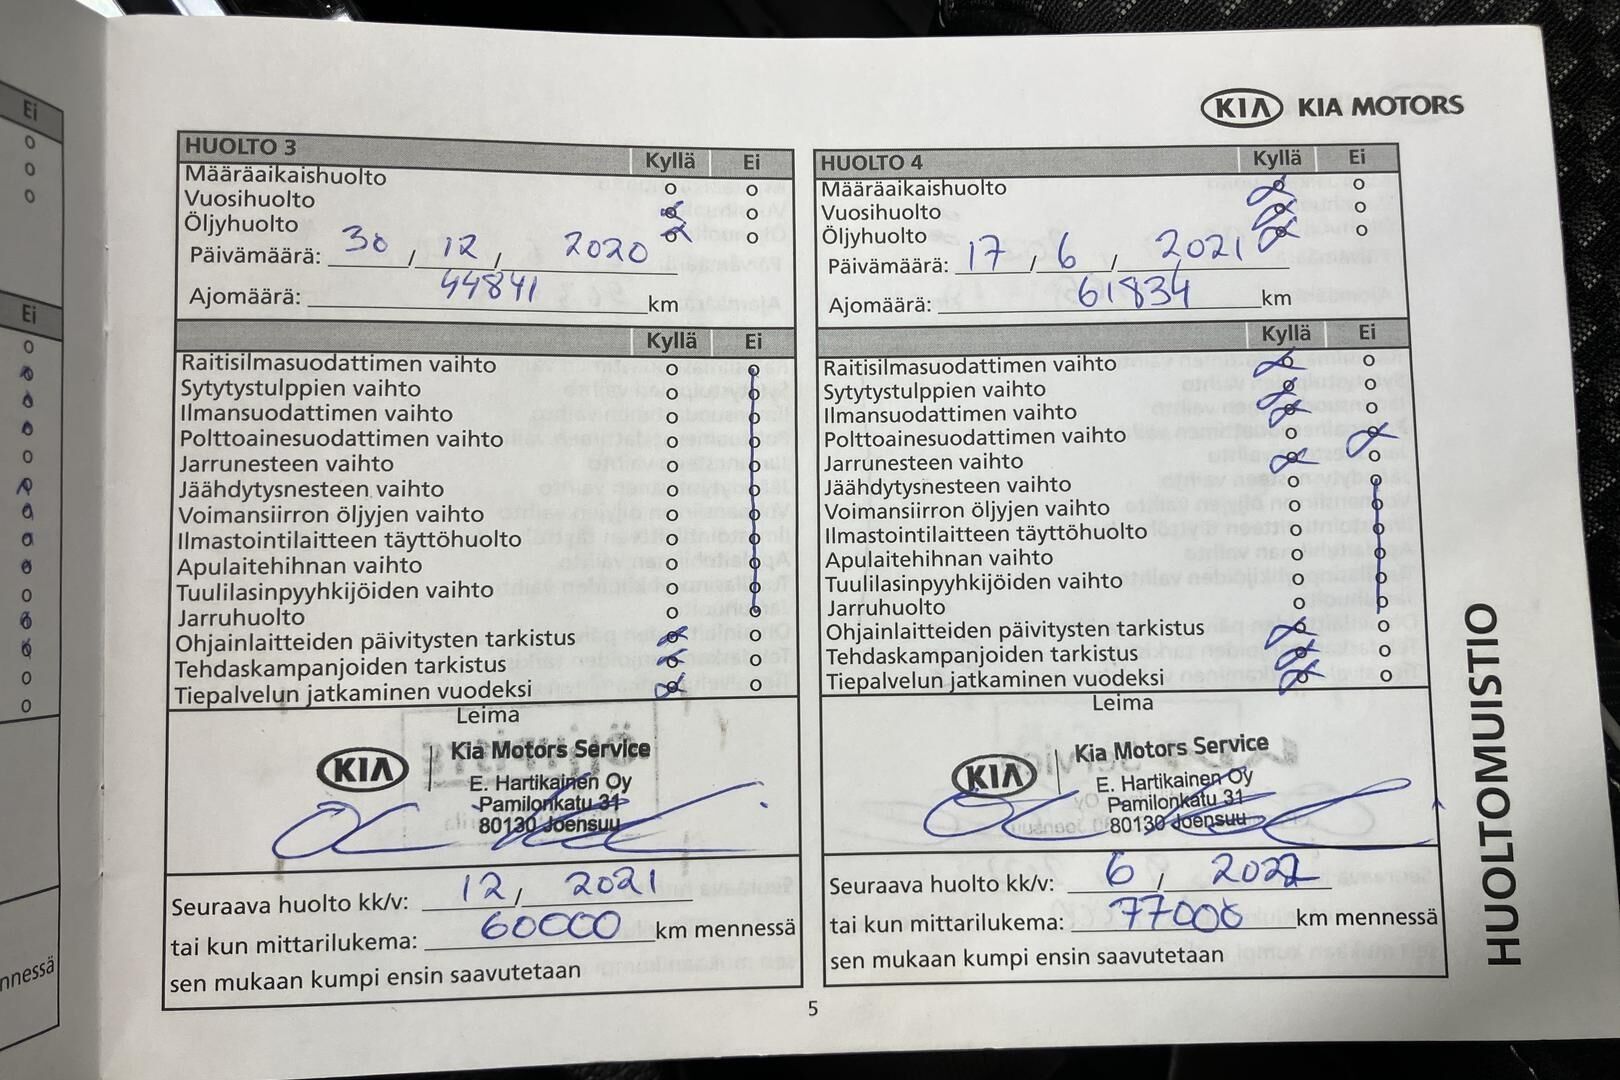 Ei
Ei
nnessä
KIA KIA MOTORS
HUOLTO 3 Kyllä Ei
Määräaikaishuolto
Vuosihuolto
Öljyhuolto
Päivämäärä: 30 / 12 / 2020
Ajomäärä: 44841 km
Kyllä Ei
Raitisilmasuodattimen vaihto
Sytytystulppien vaihto
Ilmansuodattimen vaihto
Polttoainesuodattimen vaihto
Jarrunesteen vaihto
Jäähdytysnesteen vaihto
Voimansiirron öljyjen vaihto
Ilmastointilaitteen täyttöhuolto
Apulaitehihnan vaihto
Tuulilasinpyyhkijöiden vaihto
Jarruhuolto
Ohjainlaitteiden päivitysten tarkistus
Tehdaskampanjoiden tarkistus
Tiepalvelun jatkaminen vuodeksi
Leima
KIA Kia Motors Service
E. Hartikainen Oy
Pamilonkatu 31
80130 Joensuu
Seuraava huolto kk/v: 12 / 2021
tai kun mittarilukema: 60000 km mennessä
sen mukaan kumpi ensin saavutetaan
HUOLTO 4 Kyllä Ei
Määräaikaishuolto
Vuosihuolto
Öljyhuolto
Päivämäärä: 17 / 6 / 2021
Ajomäärä: 61834 km
Kyllä Ei
Raitisilmasuodattimen vaihto
Sytytystulppien vaihto
Ilmansuodattimen vaihto
Polttoainesuodattimen vaihto
Jarrunesteen vaihto
Jäähdytysnesteen vaihto
Voimansiirron öljyjen vaihto
Ilmastointilaitteen täyttöhuolto
Apulaitehihnan vaihto
Tuulilasinpyyhkijöiden vaihto
Jarruhuolto
Ohjainlaitteiden päivitysten tarkistus
Tehdaskampanjoiden tarkistus
Tiepalvelun jatkaminen vuodeksi
Leima
KIA Kia Motors Service
E. Hartikainen Oy
Pamilonkatu 31
80130 Joensuu
Seuraava huolto kk/v: 6 / 2022
tai kun mittarilukema: 77000 km mennessä
sen mukaan kumpi ensin saavutetaan
HUOLTOMUISTIO
5